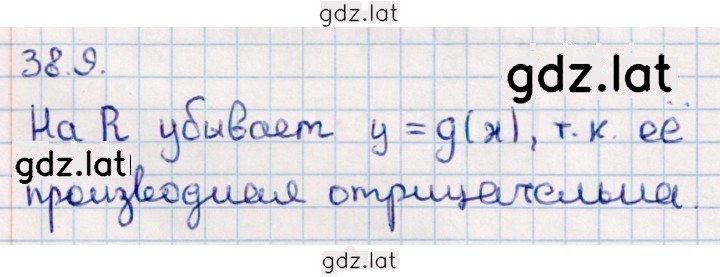 gdz.lat
38.9.
gdz.lat
На R убывает y = g(x), т.к. её
gdz.lat
производная отрицательна.
gdz.lat